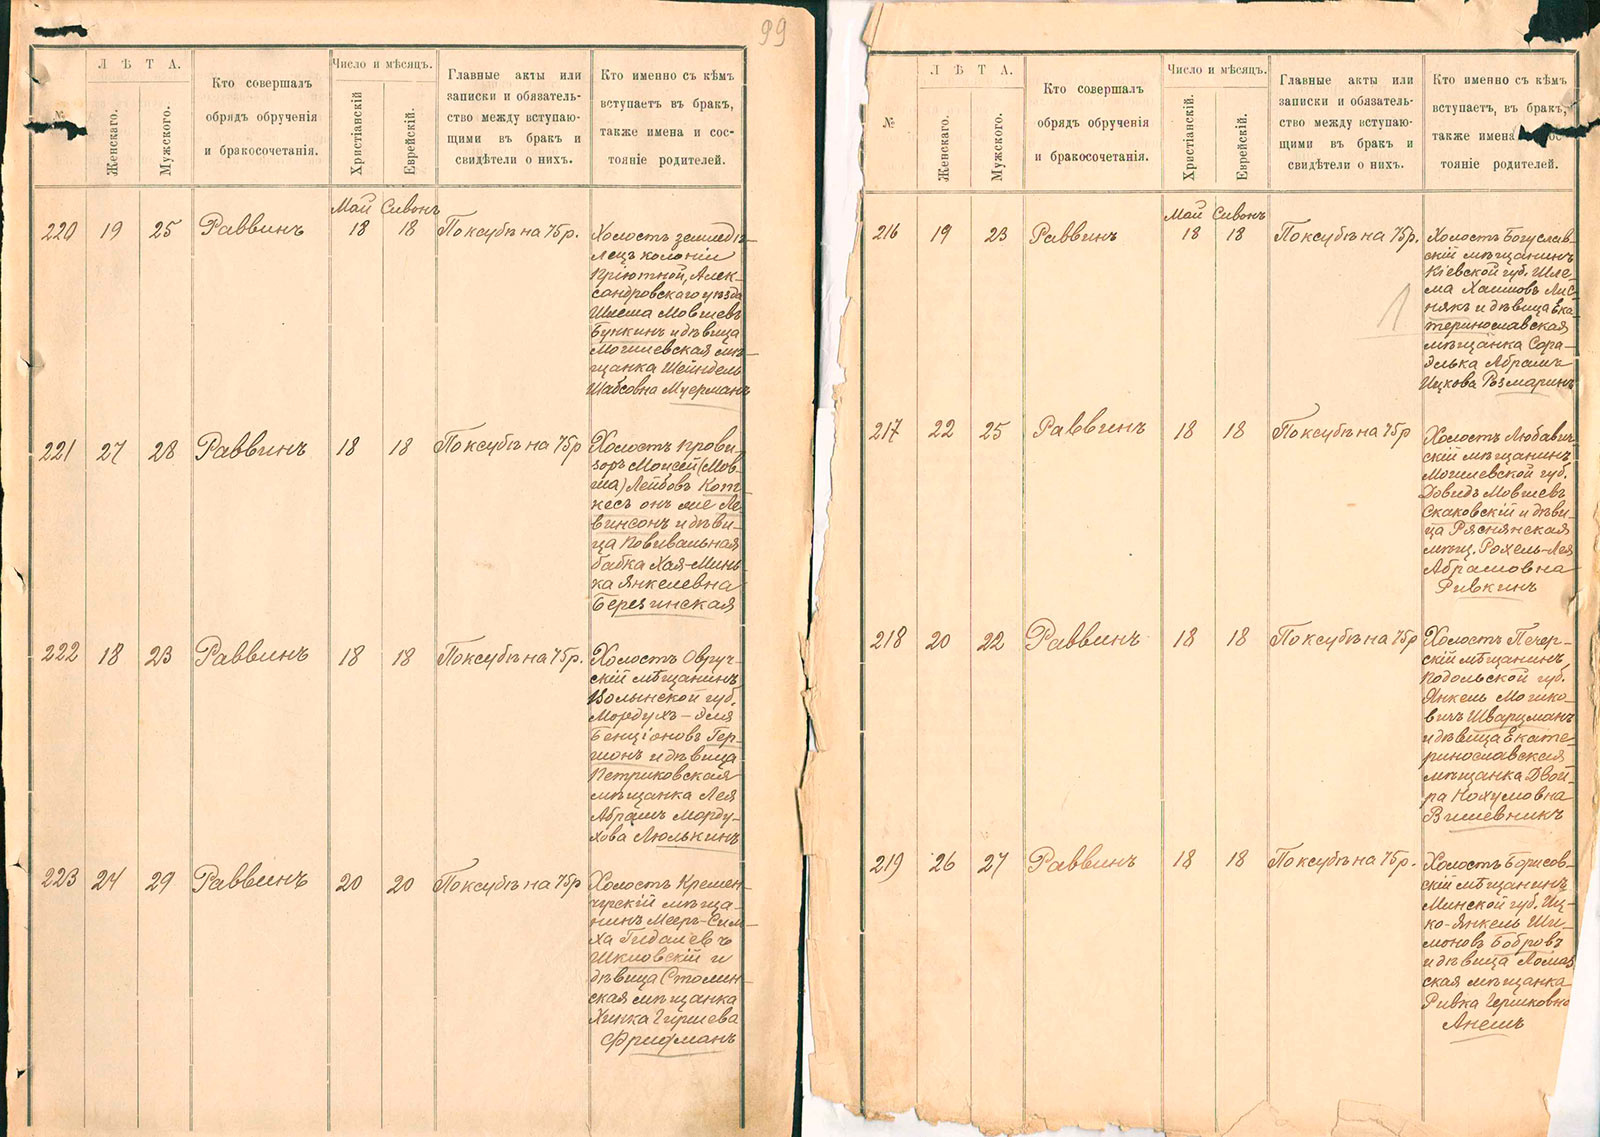 99
№
Л Ѣ Т А.
Женскаго.
Мужского.
Кто совершалъ
обрядъ обрученія
и бракосочетанія.
Число и мѣсяцъ.
Христіанскій
Еврейскій.
Главные акты или
записки и обязатель-
ство между вступаю-
щими въ бракъ и
свидѣтели о нихъ.
Кто именно съ кѣмъ
вступаетъ въ бракъ,
также имена и сос-
тояніе родителей.
Май Сивонъ
220 19 25 Раввинъ 18 18 По ксубѣ на 75 р.
Холостъ землед​ѣ-
лецъ колоніи
Пріютной, Алек-
сандровскаго уѣзда
Шлема Мовшевъ
Бункинъ и дѣвица
Могилевская мѣ-
щанка Шейндель
Шабсовна Муерманъ
221 27 28 Раввинъ 18 18 По ксубѣ на 75 р
Холостъ прови-
зоръ Моисей (Мов-
ша) Лейбовъ Кот
кесъ онъ же Ле-
винсонъ и дѣви-
ца повивальная
бабка Хая-Минь-
ка Янкелевна
Березинская
222 18 23 Раввинъ 18 18 По ксубѣ на 75 р.
Холостъ Овруч-
скій мѣщанинъ
Волынской губ.
Мордухъ-Эля
Бенціоновъ Гер-
шонъ и дѣвица
Петриковская
мѣщанка Лея
Абрамъ Морду-
хова Люлькинъ
223 24 29 Раввинъ 20 20 По ксубѣ на 75 р
Холостъ Кремен-
чугскій мѣща-
нинъ Мееръ-Сим-
ха Гидалевъ
Шкловскій и
дѣвица Столин-
ская мѣщанка
Хинка Гиршева
Фридманъ
№
Л Ѣ Т А.
Женскаго.
Мужского.
Кто совершалъ
обрядъ обрученія
и бракосочетанія.
Число и мѣсяцъ.
Христіанскій.
Еврейскій.
Главные акты или
записки и обязатель-
ство между вступаю-
щими въ бракъ и
свидѣтели о нихъ.
Кто именно съ кѣмъ
вступаетъ, въ бракъ,
также имена сос-
тояніе родителей.
Май Сивонъ
216 19 23 Раввинъ 18 18 По ксубѣ на 75 р.
Холостъ Богуслав-
скій мѣщанинъ
Кіевской губ. Шле-
ма Хаимовъ Лис-
някъ и дѣвица Ека-
теринославская
мѣщанка Сора-
Элька Абрамъ
Ицкова Розмаринъ
217 22 25 Раввинъ 18 18 По ксубѣ на 75 р
Холостъ Любавич-
скій мѣщанинъ
Могилевской губ.
Довидъ Мовшевъ
Скаковскій и дѣви-
ца Ряснянская
мѣщ. Рохель-Лея
Абрамовна
Ривкинъ
218 20 22 Раввинъ 18 18 По ксубѣ на 75 р
Холостъ Печер-
скій мѣщанинъ
Подольской губ.
Янкель Мошко-
вичъ Шварцманъ
и дѣвица Екате-
ринославская
мѣщанка Двой-
ра Нохумовна
Вишевникъ
219 26 27 Раввинъ 18 18 По ксубѣ на 75 р.
Холостъ Борисов-
скій мѣщанинъ
Минской губ. Иц-
ко-Янкель Ши-
моновъ Бобровъ
и дѣвица Ломаз
ская мѣщанка
Ривка Гершковна
Анешъ